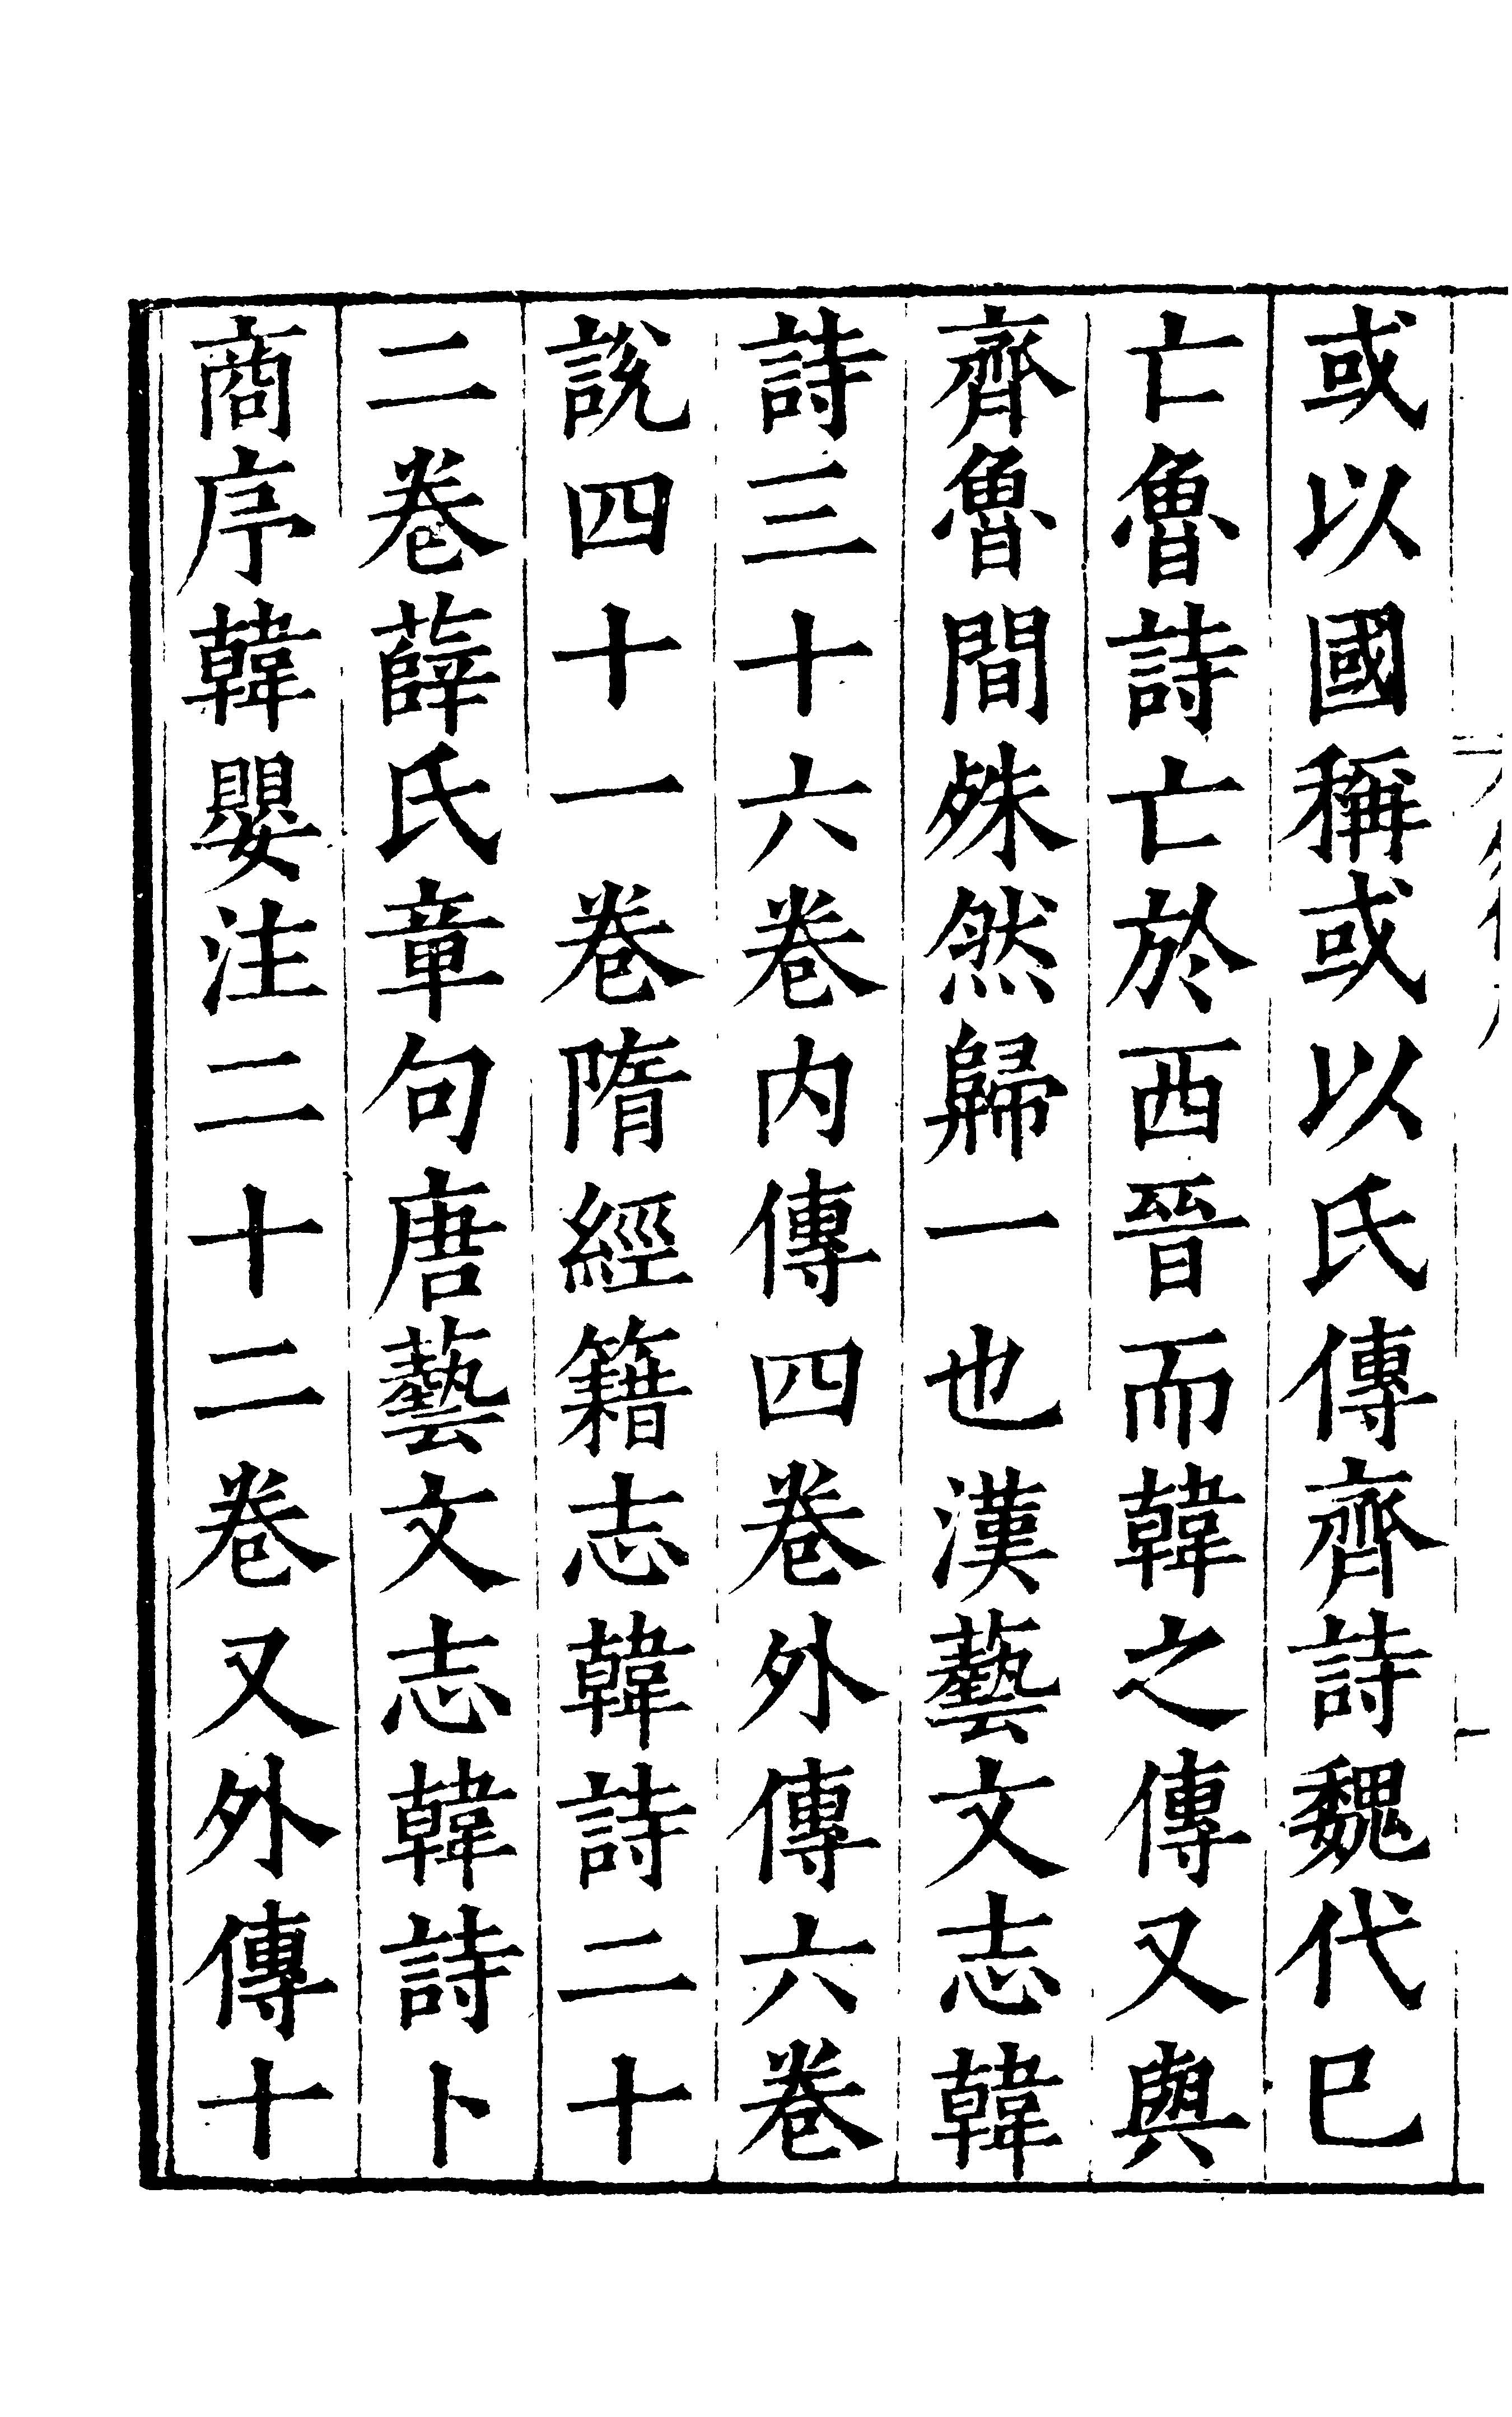 或以國稱或以氏傳齊詩魏代已
亡魯詩亡於西晉而韓之傳又與
齊魯間殊然歸一也漢藝文志韓
詩三十六卷内傳四卷外傳六卷
說四十一卷隋經籍志韓詩二十
二卷薛氏章句唐藝文志韓詩卜
商序韓嬰注二十二卷又外傳十